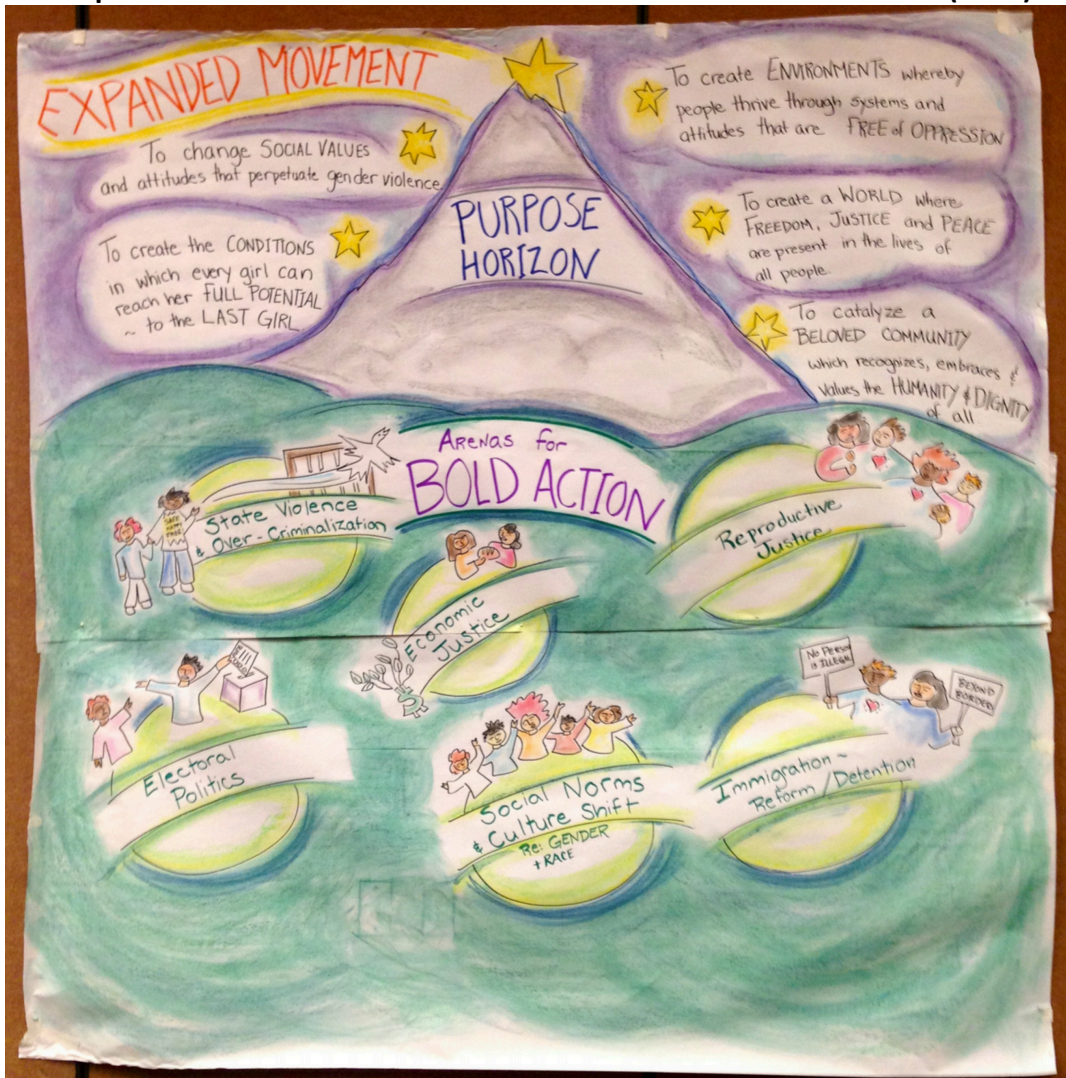 EXPANDED MOVEMENT
To change SOCIAL VALUES
and attitudes that perpetuate gender violence
To create the CONDITIONS
in which every girl can
reach her FULL POTENTIAL
~ to the LAST GIRL
PURPOSE
HORIZON
To create ENVIRONMENTS whereby
people thrive through systems and
attitudes that are FREE of OPPRESSION
To create a WORLD where
FREEDOM, JUSTICE and PEACE
are present in the lives of
all people.
To catalyze a
BELOVED COMMUNITY
which recognizes, embraces &
values the HUMANITY & DIGNITY
of all
ARENAS for
BOLD ACTION
State Violence
& Over-Criminalization
SAFE
HAPPY
FREE
Economic
Justice
$
Reproductive
Justice
Electoral
Politics
Social Norms
& Culture Shift
Re: GENDER
+ RACE
No PERSON
IS ILLEGAL
BEYOND
BORDERS
Immigration ~
Reform / Detention